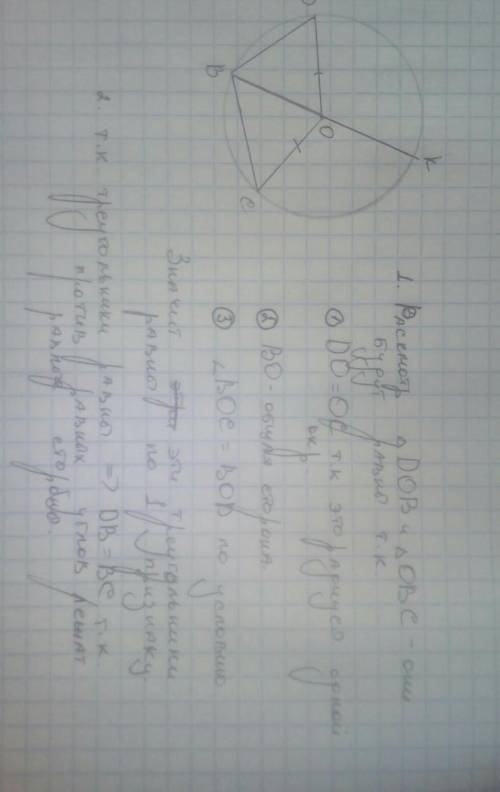 D
B
O
K
C
1. Рассмотр △DOB и △OBC - они
будут равны т.к.
① DO = OC т.к это радиуся одной
окр
② BO - общая сторона.
③ ∠BOC = BOD по условию
Значит эти треугольники
равны по 1 признаку
2. т.к треугольники равны => DB = BC т.к.
против равных углов лежат
равные стороны.